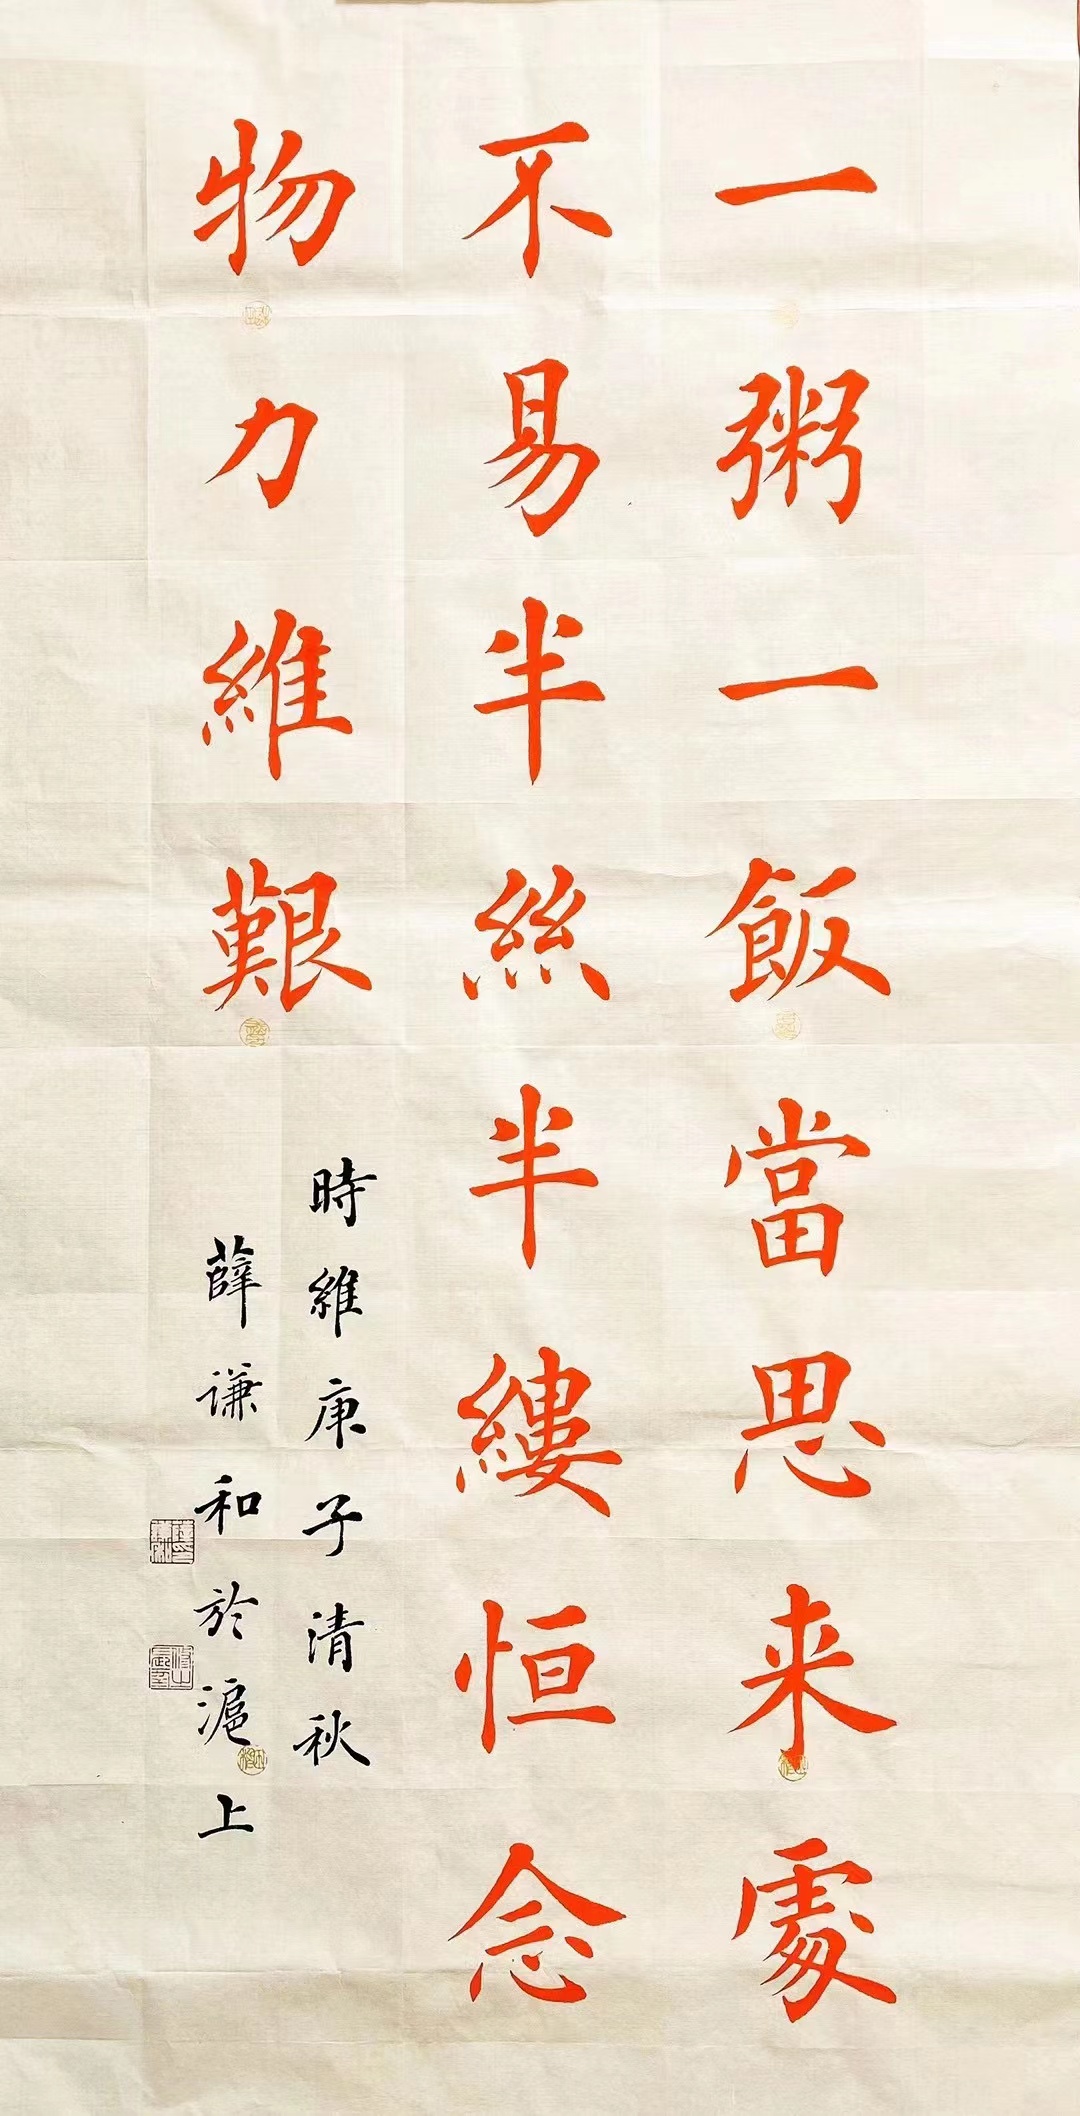 一粥一飯當思来處
不易半絲半縷恒念
物力維艱
時維庚子清秋
薛谦和於滬上